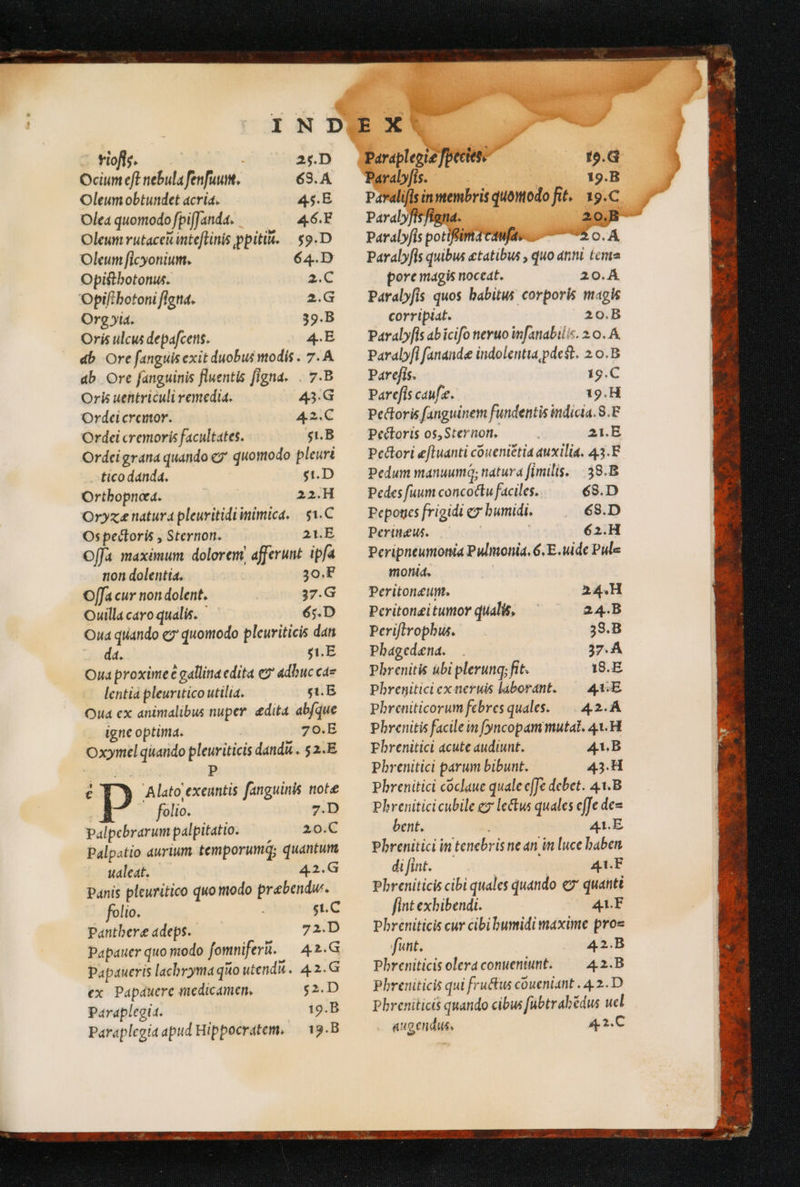 INDEX
rioſis. 25.D
Ocium eſt nebula ſenſuum. 63.A
Oleum obtundet acria. 45.E
Olea quomodo ſpiſſanda. 46.F
Oleum rutaceū inteſtinis ꝓpitiū. 59.D
Oleum ſicyonium. 64.D
Opiſthotonus. 2.C
Opiſthotoni ſigna. 2.G
Orgyia. 39.B
Oris ulcus depaſcens. 4.E
ab Ore ſanguis exit duobus modis. 7.A
ab Ore ſanguinis fluentis ſigna. 7.B
Oris uentriculi remedia. 43.G
Ordei cremor. 42.C
Ordei cremoris facultates. 51.B
Ordei grana quando & quomodo pleuri
tico danda. 51.D
Orthopnœa. 22.H
Oryzæ natura pleuritidi inimica. 51.C
Os pectoris, Sternon. 21.E
Oſſa maximum dolorem afferunt ipſa
non dolentia. 30.F
Oſſa cur non dolent. 37.G
Ouilla caro qualis. 65.D
Oua quando & quomodo pleuriticis dan
da. 51.E
Oua proxime è gallina edita & adhuc ca=
lentia pleuritico utilia. 51.E
Oua ex animalibus nuper ædita abſque
igne optima. 70.E
Oxymel quando pleuriticis dandū. 52.E
P
è PAlato exeuntis ſanguinis notæ
folio. 7.D
Palpebrarum palpitatio. 20.C
Palpatio aurium temporumq; quantum
ualeat. 42.G
Panis pleuritico quomodo præbendus.
folio. 51.C
Pantheræ adeps. 72.D
Papauer quomodo ſomniferū. 42.G
Papaueris lachryma quo utendū. 42.G
ex Papauere medicamen. 52.D
Paraplegia. 19.B
Paraplegia apud Hippocratem. 19.B
Paraplegiæ ſpecies. 19.G
Paralyſis. 19.B
Paraliſis in membris quomodo fit. 19.C
Paralyſis ſigna. 20.B
Paralyſis potiſsima cauſa. 20.A
Paralyſis quibus ætatibus, quo anni tem=
pore magis noceat. 20.A
Paralyſis quos habitus corporis magis
corripiat. 20.B
Paralyſis ab iciſo neruo inſanabilis. 20.A
Paralyſi ſanandæ indolentia ꝓdeſt. 20.B
Pareſis. 19.C
Pareſis cauſæ. 19.H
Pectoris ſanguinem fundentis indicia. 8.F
Pectoris os, Sternon. 21.E
Pectori æſtuanti cōueniētia auxilia. 43.F
Pedum manuumq; natura ſimilis. 38.B
Pedes ſuum concoctu faciles. 68.D
Pepones frigidi & humidi. 68.D
Perinæus. 62.H
Peripneumonia Pulmonia. 6.E. uide Pul=
monia.
Peritonæum. 24.H
Peritonæi tumor qualis. 24.B
Periſtrophus. 38.B
Phagedæna. 37.A
Phrenitis ubi plerunq; fit. 18.E
Phrenitici ex neruis laborant. 41.E
Phreniticorum febres quales. 42.A
Phrenitis facile in ſyncopam mutat. 41.H
Phrenitici acute audiunt. 41.B
Phrenitici parum bibunt. 43.H
Phrenitici cōclaue quale eſſe debet. 41.B
Phrenitici cubile & lectus quales eſſe de=
bent. 41.E
Phrenitici in tenebris ne an in luce haben
di ſint. 41.F
Phreniticis cibi quales quando & quanti
ſint exhibendi. 41.F
Phreniticis cur cibi humidi maxime pro=
ſunt. 42.B
Phreniticis olera conueniunt. 42.B
Phreniticis qui fructus cōueniant. 42.D
Phreniticis quando cibus ſubtrahēdus uel
augendus. 42.C